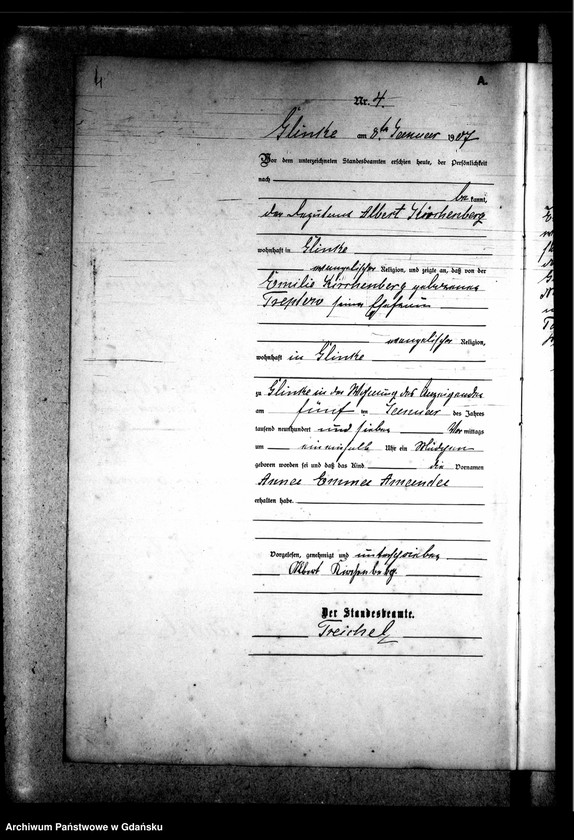 4
A.
Nr. 4.
Glinke am 8ten Januar 1907
Vor dem unterzeichneten Standesbeamten erschien heute, der Persönlichkeit
nach
be kannt,
der Albert Kirschenberg
wohnhaft in Glinke
evangelischer Religion, und zeigte an, daß von der
Emilie Kirschenberg geborenen
Treptow seiner Ehefrau
evangelischer Religion,
wohnhaft in Glinke
zu Glinke in der Wohnung des Anzeigenden
am fünf ten Januar des Jahres
tausend neunhundert und sieben Vor mittags
um ein einhalb Uhr ein Mädchen
geboren worden sei und daß das Kind die Vornamen
Anna Emma Amanda
erhalten habe.
Vorgelesen, genehmigt und unterschrieben
Albert Kirschenberg.
Der Standesbeamte.
Treichel
Archiwum Państwowe w Gdańsku